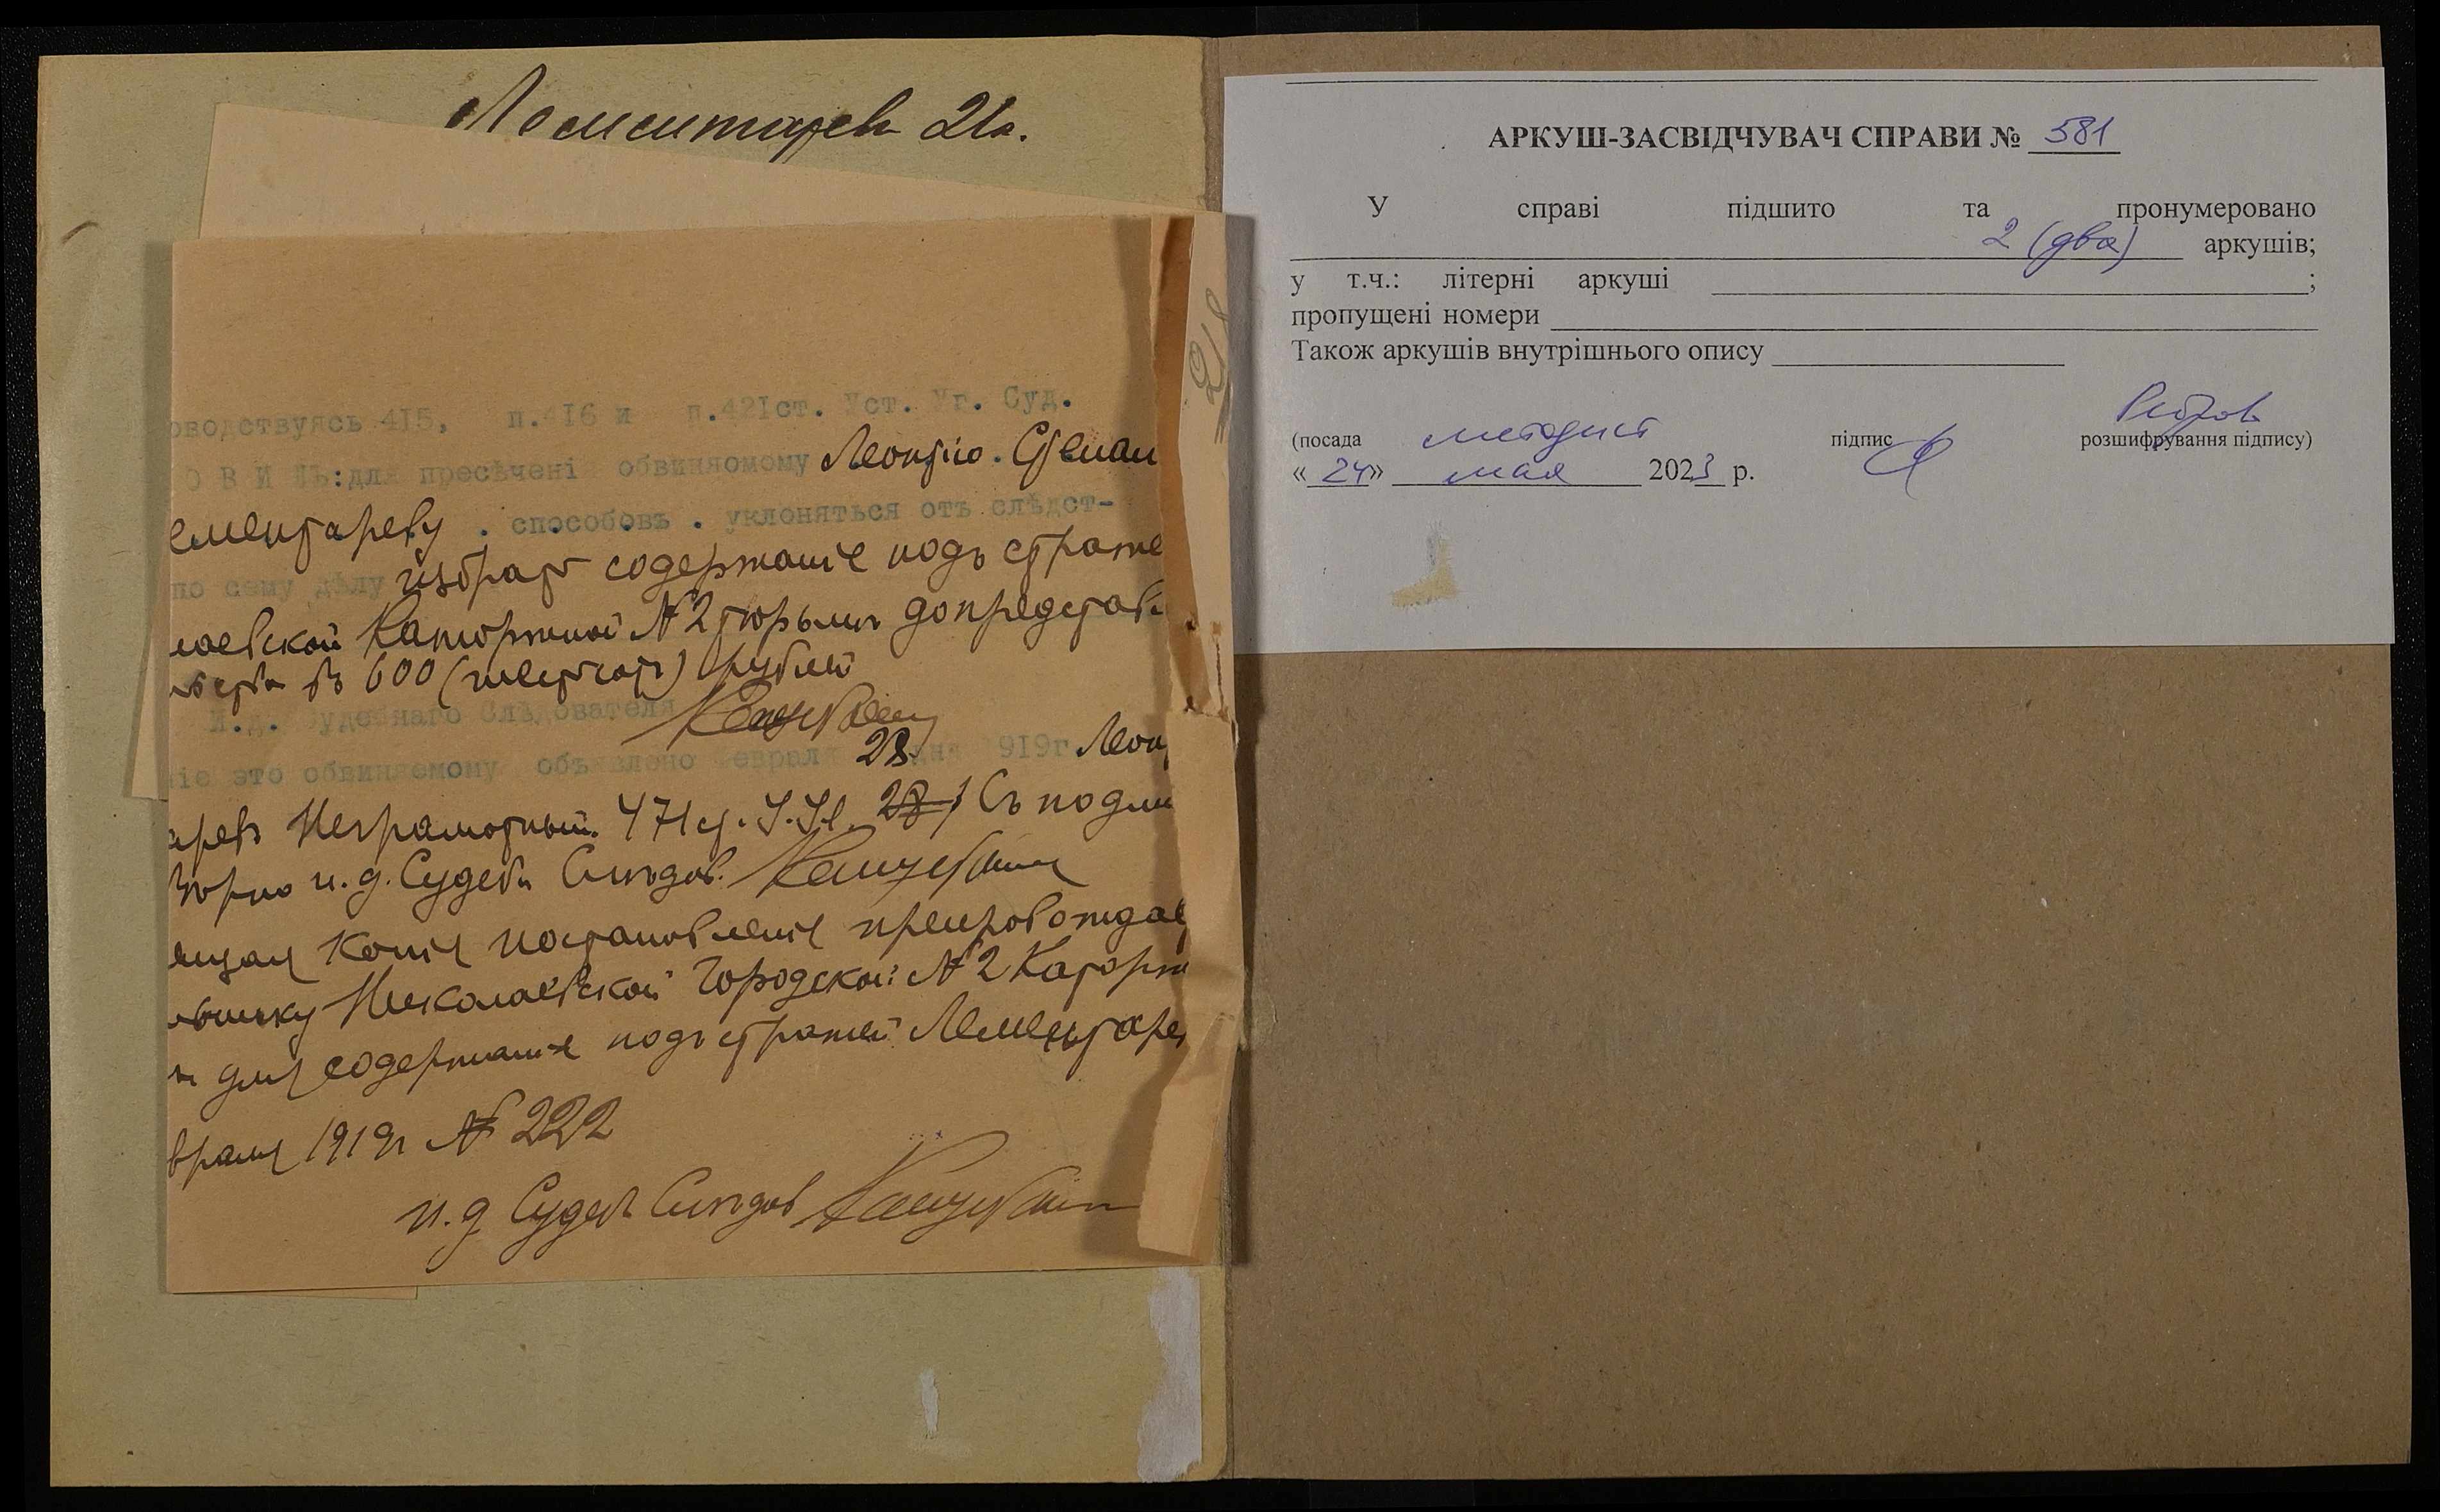 Лементарев 21а.
218
оводствуясь 415, п.416 и п.421ст. Уст. Уг. Суд.
О В И ЛЪ:для пресѣчені обвиняомому Леонтію . Степан
ементареву . способовъ . уклоняться отъ слѣдст-
по сему дѣлу избрать содержаніе подъ страже
лаевской Каторжной № 2 тюрьмѣ до представ
въ 600 (шестьсот) рублей
И.д. Судебнаго Слѣдователя
ніе это обвиняемому объявлено евраля 28 дня 919г. Леон
арев Неграмотный. 471 ст. У.У.С. 28 / Съ подли
вѣрно и. д. Судебн Слѣдов.
ящая копія постановленія препровождает
льнику Николаевской Городской № 2 Каторжн
для содержанія подъ стражей Лементаре
враля 1919г № 222
и. д Судеб Слѣдов
АРКУШ-ЗАСВІДЧУВАЧ СПРАВИ № 581
У справі підшито та пронумеровано
2 (два) аркушів;
у т.ч.: літерні аркуші ;
пропущені номери
Також аркушів внутрішнього опису
(посада методист підпис розшифрування підпису)
« 24» мая 2023 р.